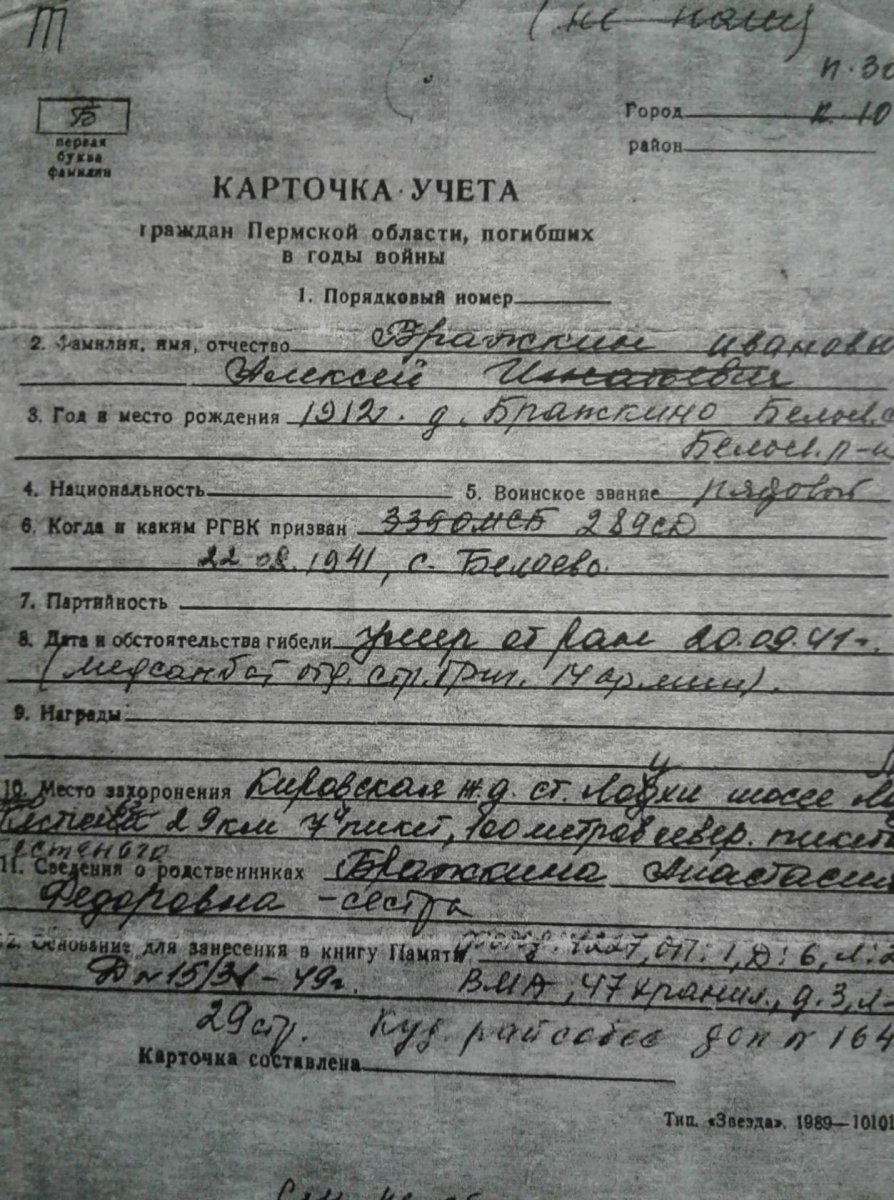 (не наш)
п. 30
Б
первая
буква
фамилии
Город п. 10
район
КАРТОЧКА УЧЕТА
граждан Пермской области, погибших
в годы войны
1. Порядковый номер
2. Фамилия, имя, отчество Бражкин Иванови
Алексей Игнатьевич
3. Год и место рождения 1912г. д. Бражкино Белоев. с
Белоев. р-н
4. Национальность 5. Воинское звание рядовой
6. Когда и каким РГВК призван ОМСБ 289СД
22.08.1941, с. Белоево.
7. Партийность
8. Дата и обстоятельства гибели умер от ран 20.09.41г.
(медсанбат отд. стр. 14 армии).
9. Награды
10. Место захоронения Кировская ж.д. ст. Лоухи шоссе
29 км 7й пикет, 100 метров север. пикет
11. Сведения о родственниках Бражкина Анастасия
Федоровна - сестра
12. Основание для занесения в книгу Памяти оп: 1, Д: 6, Л: 2
Д №15/31-49г. ВМА, 47 хранил., д. 3, Л-
29 стр. Куд. райсобес доп № 164
Карточка составлена
Тип. «Звезда». 1989—10101